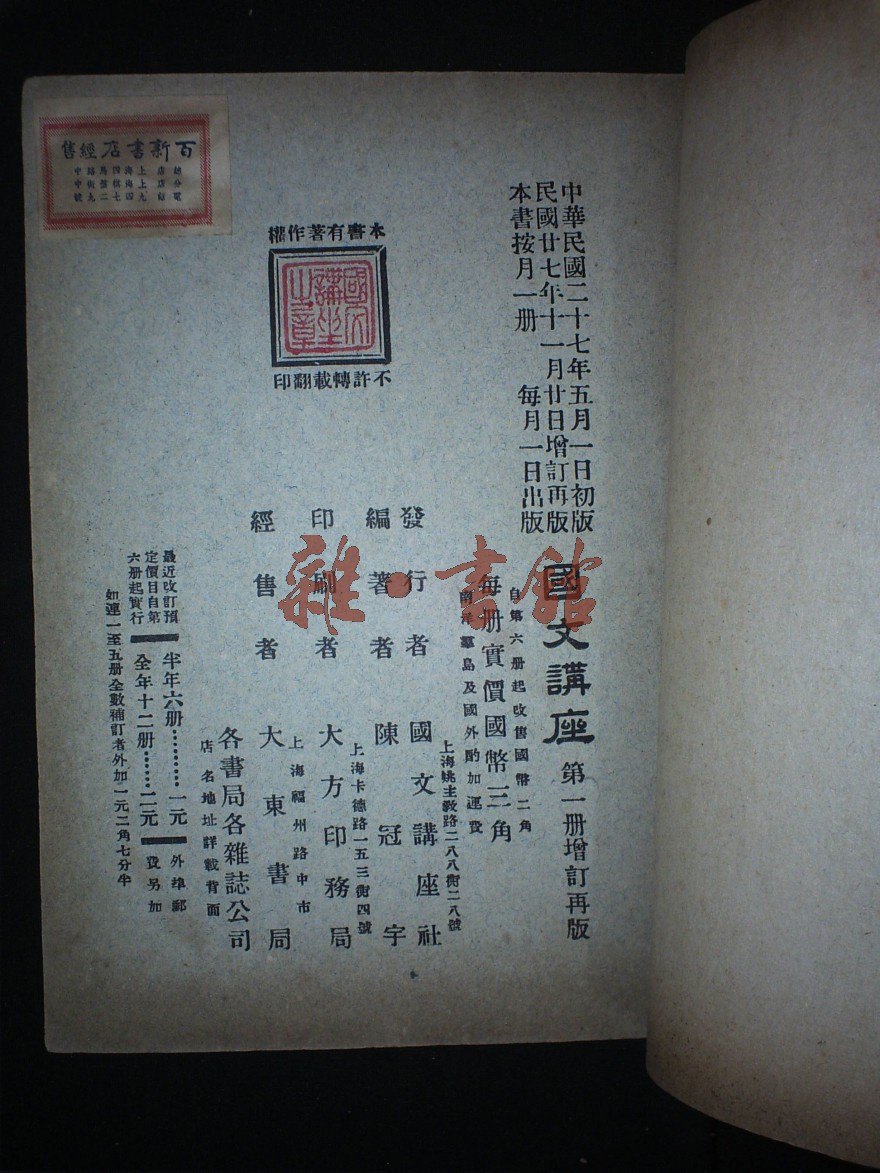 中華民國二十七年五月一日初版
民國廿七年十一月廿日增訂再版
本書按月一册 每月一日出版
國文講座 第一册增訂再版
自第六册起改售國幣二角
每册實價國幣三角
南洋羣島及國外酌加運費
發行者 國文講座社
上海姚主教路二八八街二八號
編著者 陳冠宇
印刷者 大方印務局
上海卡德路一五三街四號
經售者 大東書局
上海福州路中市
各書局各雜誌公司
店名地址詳載背面
最近改訂預
定價目自第
六册起實行
半年六册………一元
全年十二册……二元
外埠郵
費另加
如連一至五册全數補訂者外加一元二角七分半
本書有著作權
國文
講坐
之章
不許轉載翻印
百新書店經售
總店上海四馬路中
分店上海棋盤街中
電話九四七二九號
雜·書館